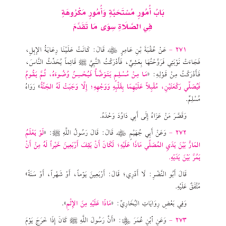 بَابُ أُمُورٍ مُسْتَحَبَّةٍ وَأُمُورٍ مَكْرُوهَةٍ
فِي الصَّلَاةِ سِوَى مَا تَقَدَّمَ
٢٧١ - عَنْ عُقْبَةَ بْنِ عَامِرٍ ﷺ، قَالَ: كَانَتْ عَلَيْنَا رِعَايَةُ الإِبِلِ،
فَجَاءَتْ نَوْبَتِي فَرَوَّحْتُهَا بِعَشِيٍّ، فَأَدْرَكْتُ النَّبِيَّ ﷺ قَائِماً يُحَدِّثُ النَّاسَ،
فَأَدْرَكْتُ مِنْ قَوْلِهِ: «مَا مِنْ مُسْلِمٍ يَتَوَضَّأُ فَيُحْسِنُ وُضُوءَهُ، ثُمَّ يَقُومُ
فَيُصَلِّي رَكْعَتَيْنِ، مُقْبِلاً عَلَيْهِمَا بِقَلْبِهِ وَوَجْهِهِ؛ إِلَّا وَجَبَتْ لَهُ الجَنَّةُ» رَوَاهُ
مُسْلِمٌ.
وَقَصَّرَ مَنْ عَزَاهُ إِلَى أَبِي دَاوُدَ وَحْدَهُ.
٢٧٢ - وَعَنْ أَبِي جُهَيْمٍ قَالَ: قَالَ رَسُولُ اللَّهِ ﷺ: «لَوْ يَعْلَمُ
المَارُّ بَيْنَ يَدَيِ المُصَلِّي مَاذَا عَلَيْهِ؛ لَكَانَ أَنْ يَقِفَ أَرْبَعِينَ خَيْراً لَهُ مِنْ أَنْ
يَمُرَّ بَيْنَ يَدَيْهِ.
قَالَ أَبُو النَّضْرِ: لَا أَدْرِي؛ قَالَ: أَرْبَعِينَ يَوْماً، أَوْ شَهْراً، أَوْ سَنَةً»
مُتَّفَقٌ عَلَيْهِ.
وَفِي بَعْضِ رِوَايَاتِ البُخَارِيِّ: «مَاذَا عَلَيْهِ مِنَ الإِثْمِ».
٢٧٣ - وَعَنِ ابْنِ عُمَرَ: «أَنَّ رَسُولَ اللَّهِ ﷺ كَانَ إِذَا خَرَجَ يَوْمَ